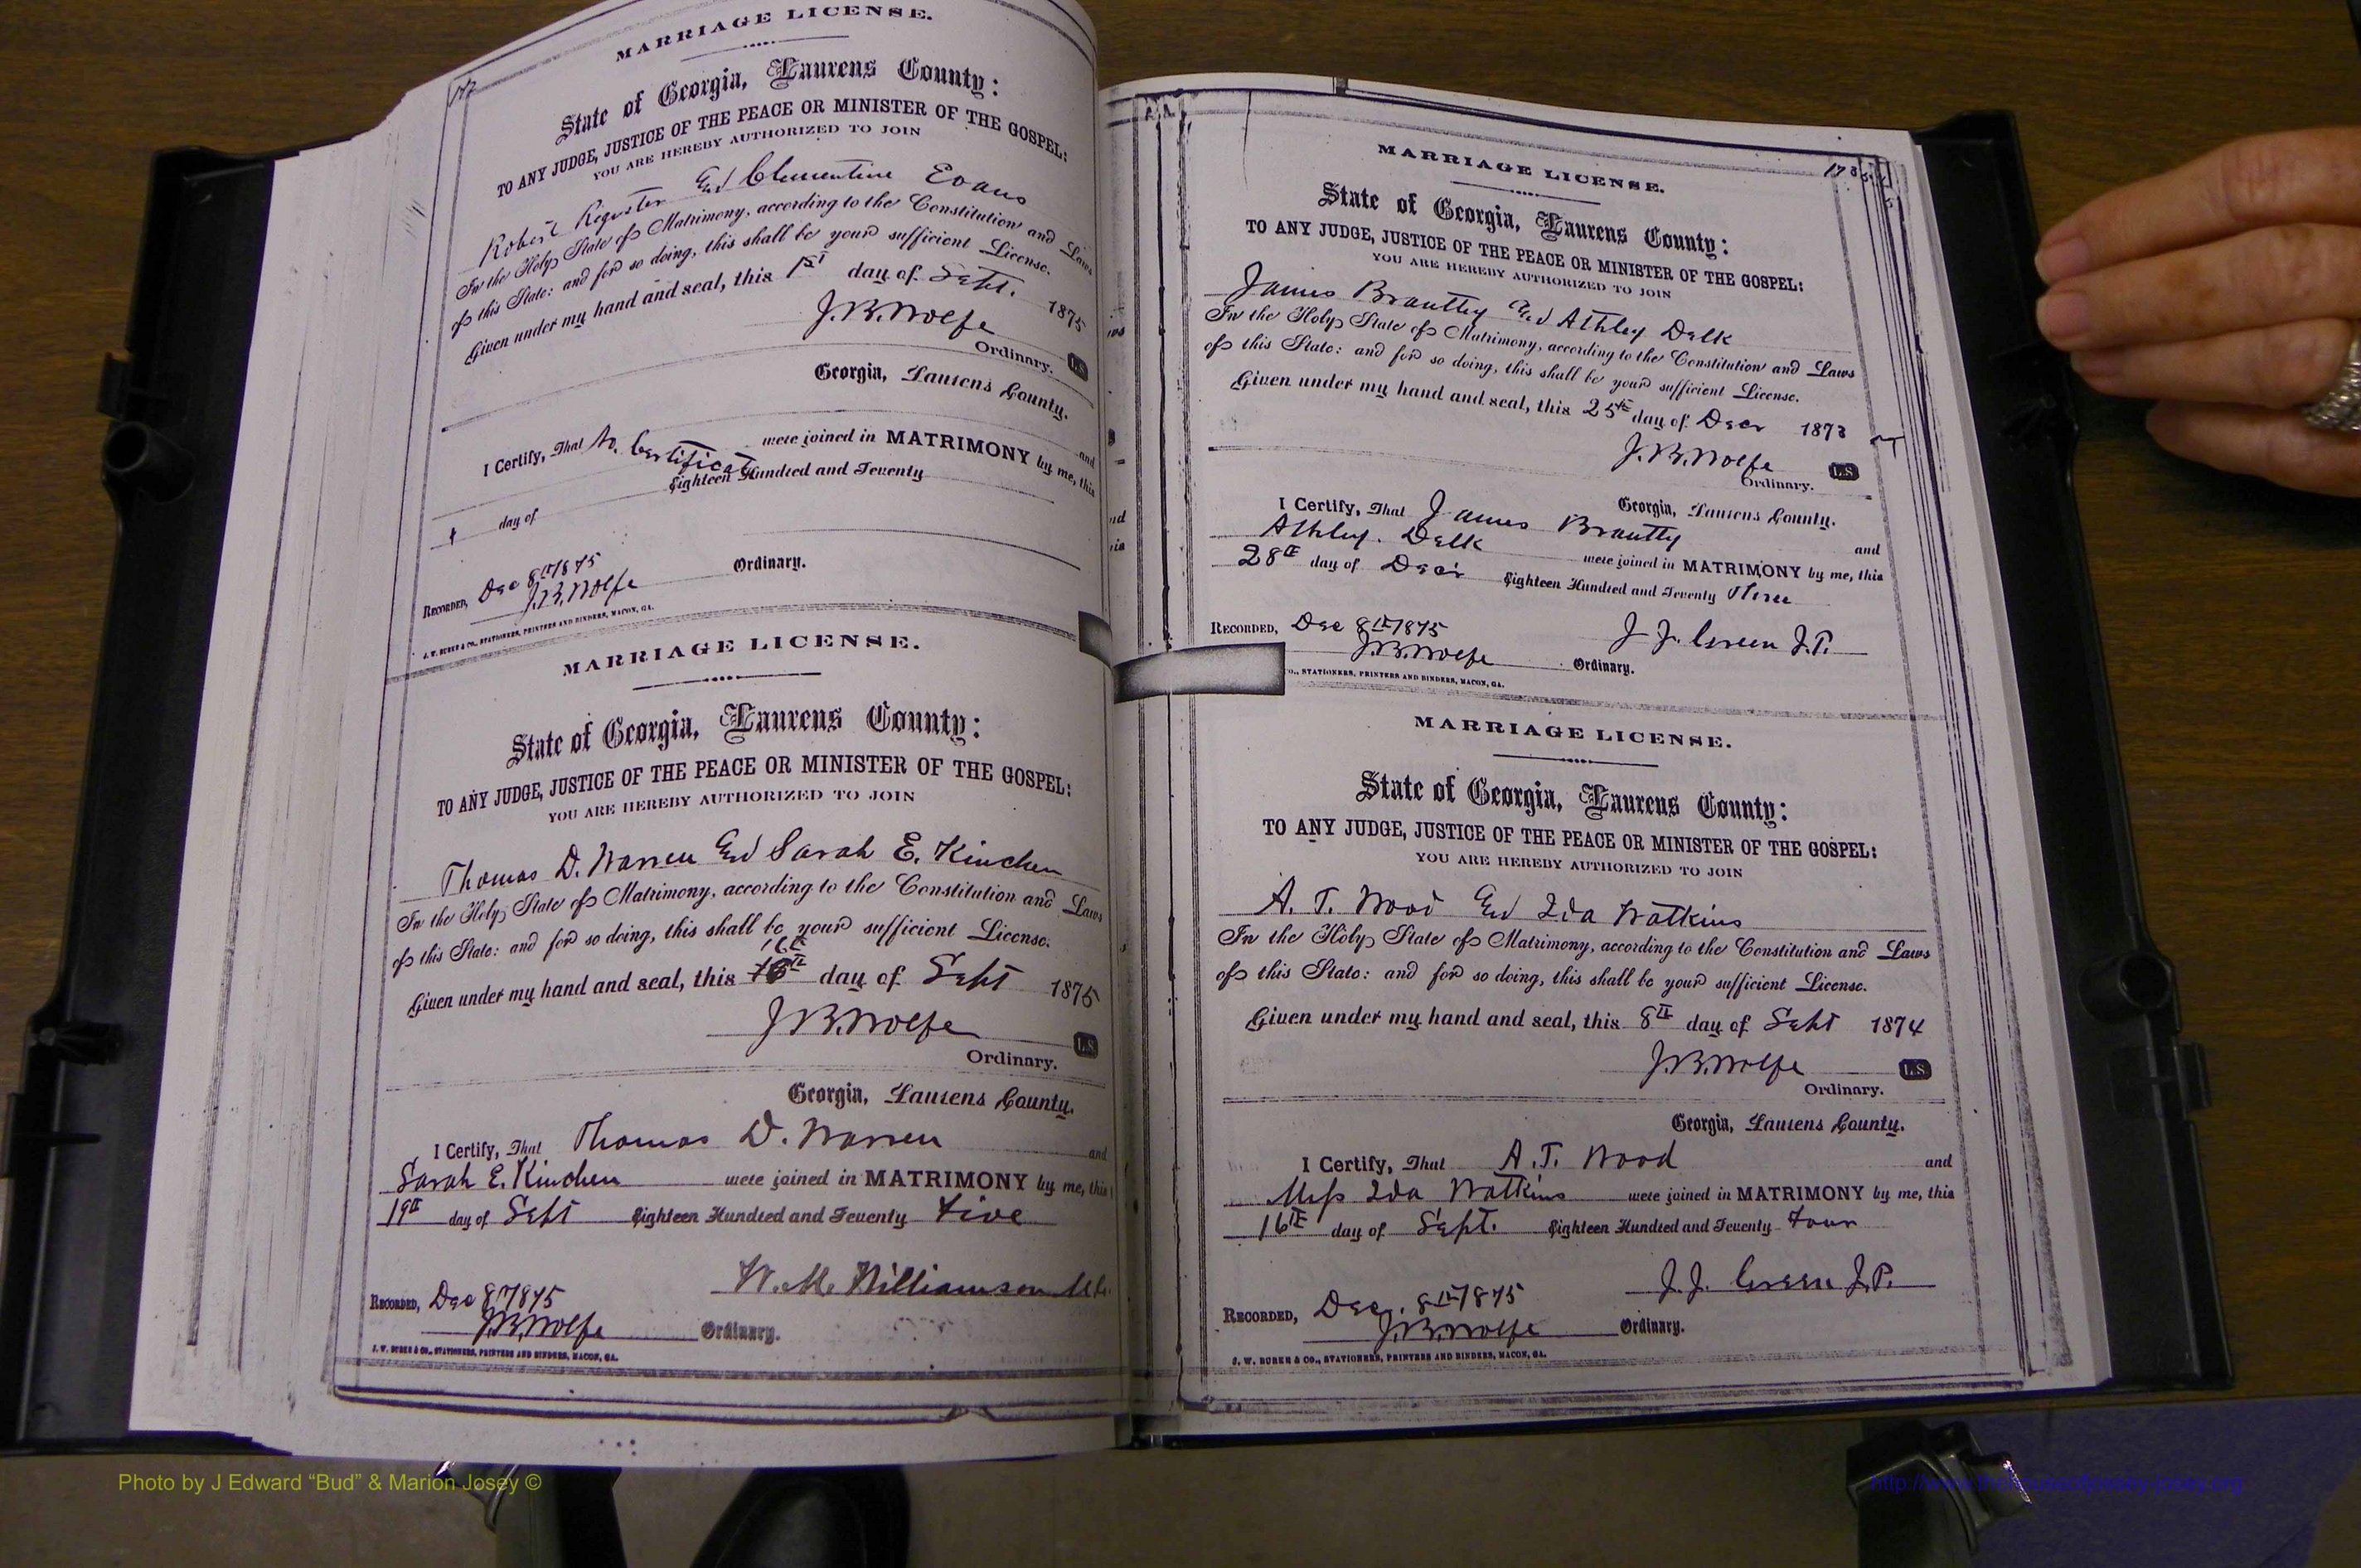 MARRIAGE LICENSE.
State of Georgia, Laurens County:
TO ANY JUDGE, JUSTICE OF THE PEACE OR MINISTER OF THE GOSPEL:
YOU ARE HEREBY AUTHORIZED TO JOIN
Robert Register And Clementine Evans
In the Holy State of Matrimony, according to the Constitution and Laws
of this State: and for so doing, this shall be your sufficient License.
Given under my hand and seal, this 1st day of Sept. 1875
J.B. Wolfe
Ordinary. L.S.
Georgia, Laurens County.
I Certify, That No Certificate and
were joined in MATRIMONY by me, this
day of Eighteen Hundred and Seventy
Recorded, Dec 8th 1875
J.B. Wolfe Ordinary.
J. W. BURKE & CO., STATIONERS, PRINTERS AND BINDERS, MACON, GA.
MARRIAGE LICENSE.
State of Georgia, Laurens County:
TO ANY JUDGE, JUSTICE OF THE PEACE OR MINISTER OF THE GOSPEL:
YOU ARE HEREBY AUTHORIZED TO JOIN
Thomas D. Warren And Sarah E. Kinchen
In the Holy State of Matrimony, according to the Constitution and Laws
of this State: and for so doing, this shall be your sufficient License.
16th
Given under my hand and seal, this day of Sept 1875
J.B. Wolfe
Ordinary. L.S.
Georgia, Laurens County.
I Certify, That Thomas D. Warren and
Sarah E. Kinchen were joined in MATRIMONY by me, this
19th day of Sept Eighteen Hundred and Seventy Five
W. M. Williamson
Recorded, Dec 8th 1875
J.B. Wolfe Ordinary.
J. W. BURKE & CO., STATIONERS, PRINTERS AND BINDERS, MACON, GA.
178
MARRIAGE LICENSE.
State of Georgia, Laurens County:
TO ANY JUDGE, JUSTICE OF THE PEACE OR MINISTER OF THE GOSPEL:
YOU ARE HEREBY AUTHORIZED TO JOIN
James Brantly And Athley Delk
In the Holy State of Matrimony, according to the Constitution and Laws
of this State: and for so doing, this shall be your sufficient License.
Given under my hand and seal, this 25th day of Decr 1873
J.B. Wolfe
Ordinary. L.S.
Georgia, Laurens County.
I Certify, That James Brantly and
Athley Delk were joined in MATRIMONY by me, this
28th day of Decr Eighteen Hundred and Seventy Three
J. J. Green J.P.
Recorded, Dec 8th 1875
J.B. Wolfe Ordinary.
CO., STATIONERS, PRINTERS AND BINDERS, MACON, GA.
MARRIAGE LICENSE.
State of Georgia, Laurens County:
TO ANY JUDGE, JUSTICE OF THE PEACE OR MINISTER OF THE GOSPEL:
YOU ARE HEREBY AUTHORIZED TO JOIN
A. T. Wood And Ida Watkins
In the Holy State of Matrimony, according to the Constitution and Laws
of this State: and for so doing, this shall be your sufficient License.
Given under my hand and seal, this 8th day of Sept 1874
J.B. Wolfe
Ordinary. L.S.
Georgia, Laurens County.
I Certify, That A. T. Wood and
Miss Ida Watkins were joined in MATRIMONY by me, this
16th day of Sept. Eighteen Hundred and Seventy Four
J. J. Green J.P.
Recorded, Dec. 8th 1875
J.B. Wolfe Ordinary.
J. W. BURKE & CO., STATIONERS, PRINTERS AND BINDERS, MACON, GA.
Photo by J Edward “Bud” & Marion Josey ©
http://www.thehouseofjosey-josey.org